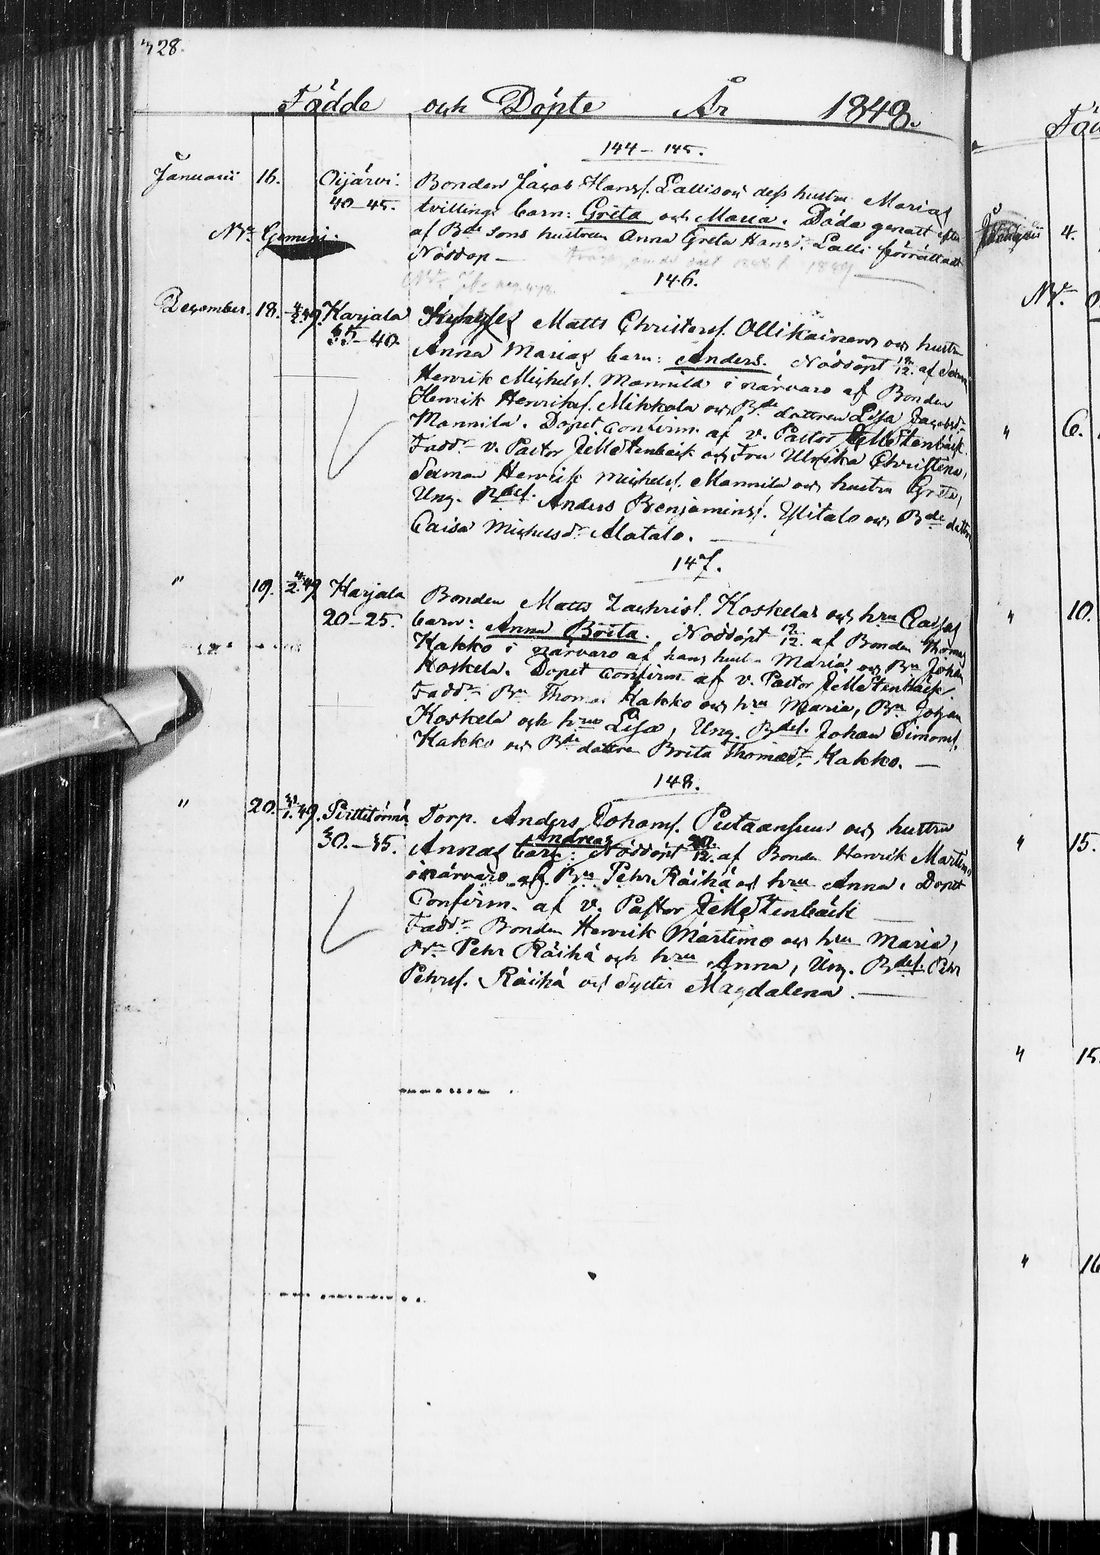 28.
Födde och Döpte År 1848.
144–145.
Januarii 16. Oijärvi 40–45. Bonden Jacob Hansf. Lallis och dess hustru Marias
tvillinge barn: Greta och Maria. Döda genast efter
Nb. Gemini. af Bde Sons hustrun Anna Greta Hansdr. Lalli förrättadt
Nöddop —
146.
December 18. 4/2.49. Karjala 35–40. Matts Christersf. Ollikainens och hustru
Anna Marias barn: Anders. Nöddöpt 18/12. af
Henrik Michelsf. Mannila i närvaro af Bonden
Henrik Henriksf. Mikkola och Bde dottren Lisa Jacobsdr
Mannila. Dopet confirm. af v. Pastor J. M. Stenbäck.
Fadd. v. Pastor J. M. Stenbäck och Fru Ulrika Christina,
Henrik Michelsf. Mannila och hustru Greta,
Ung. Bdes. Anders Benjaminsf. Ylitalo och Bde dottren
Caisa Michelsdr Alatalo.
147.
" 19. 4/2.49. Karjala 20–25. Bonden Matts Zachrisf. Koskelas och hru Caisas
barn: Anna Brita. Nöddöpt 19/12. af Bonden Thomas
Kakko i närvaro af hans hustru Maria och Bn Johan
Koskela. Dopet confirm. af v. Pastor J. M. Stenbäck
Fadd. Bn Thomas Kakko och hru Maria, Bn Johan
Koskela och hru Lisa, Ung. Bdes. Johan Simonsf.
Kakko och Bde dottren Brita Thomasdr Kakko. —
148.
" 20. 31/1.49. Pirttitörmä 30.–35. Torp. Anders Johansf. Putaansuu och hustru
Andreas
Annas barn: Nöddöpt 20/12. af Bonden Henrik Martimo
i närvaro af Bn Pehr Räihä och hru Anna. Dopet
Confirm. af v. Pastor J. M. Stenbäck —
Fadd. Bonden Henrik Martimo och hru Maria,
Bn Pehr Räihä och hru Anna, Ung. Bdes. Pehr
Pehrsf. Räihä och Syster Magdalena. —
Januarii 4.
Nb.
" 6.
" 10.
" 15.
" 15.
" 16